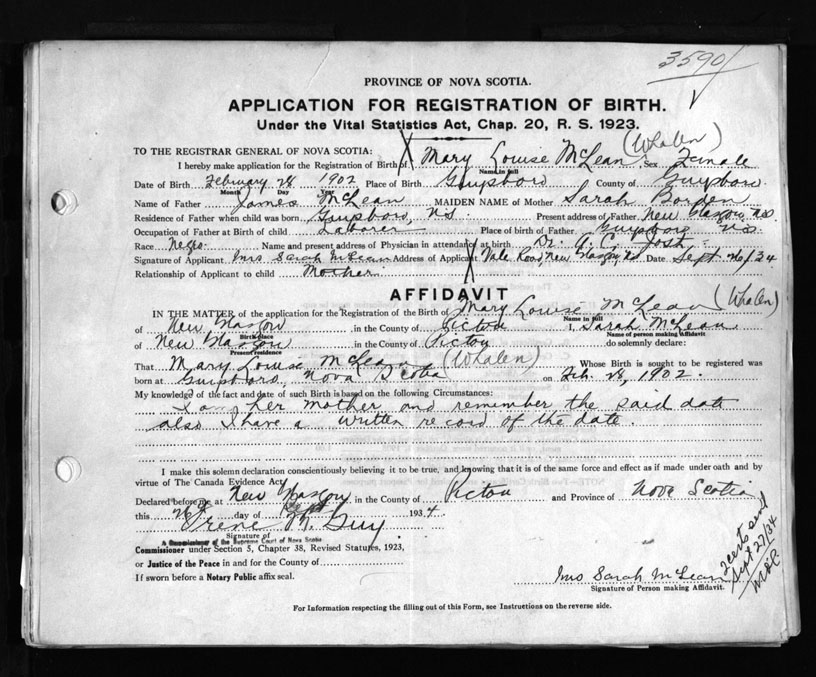 3590
PROVINCE OF NOVA SCOTIA.
APPLICATION FOR REGISTRATION OF BIRTH.
Under the Vital Statistics Act, Chap. 20, R. S. 1923.
TO THE REGISTRAR GENERAL OF NOVA SCOTIA: (Whalen)
I hereby make application for the Registration of Birth of X Mary Louise McLean Sex Female
Name in full
Date of Birth February 28 1902 Place of Birth Guysboro County of Guysboro
Month Day Year
Name of Father James McLean MAIDEN NAME of Mother Sarah Borden
Residence of Father when child was born Guysboro, N.S. Present address of Father New Glasgow, N.S.
Occupation of Father at Birth of child Laborer Place of birth of Father Guysboro N.S.
Race Negro Name and present address of Physician in attendance at birth Dr. G. C.
Signature of Applicant Mrs Sarah McLean Address of Applicant X Vale Road, New Glasgow, N.S. Date Sept. 26/34
Relationship of Applicant to child Mother
AFFIDAVIT
IN THE MATTER of the application for the Registration of the Birth of Mary Louise McLean (Whalen)
Name in full
of New Glasgow, in the County of Pictou I, Sarah McLean
Birth place Name of person making Affidavit
of New Glasgow, in the County of Pictou do solemnly declare:
Present residence
That Mary Louise McLean (Whalen) Whose Birth is sought to be registered was
born at Guysboro, Nova Scotia on Feb. 28, 1902.
My knowledge of the fact and date of such Birth is based on the following Circumstances:
I am her mother and remember the said date
also I have a written record of the date.
I make this solemn declaration conscientiously believing it to be true, and knowing that it is of the same force and effect as if made under oath and by
virtue of The Canada Evidence Act
Declared before me at New Glasgow, in the County of Pictou and Province of Nova Scotia
this 26th day of Sept. 1934.
Irene M. Guy
Signature of
A Commissioner of the Supreme Court of Nova Scotia
Commissioner under Section 5, Chapter 38, Revised Statutes, 1923,
or Justice of the Peace in and for the County of
If sworn before a Notary Public affix seal.
Mrs Sarah McLean
Signature of Person making Affidavit.
2 certs send
Sept 27/34
For Information respecting the filling out of this Form, see Instructions on the reverse side.